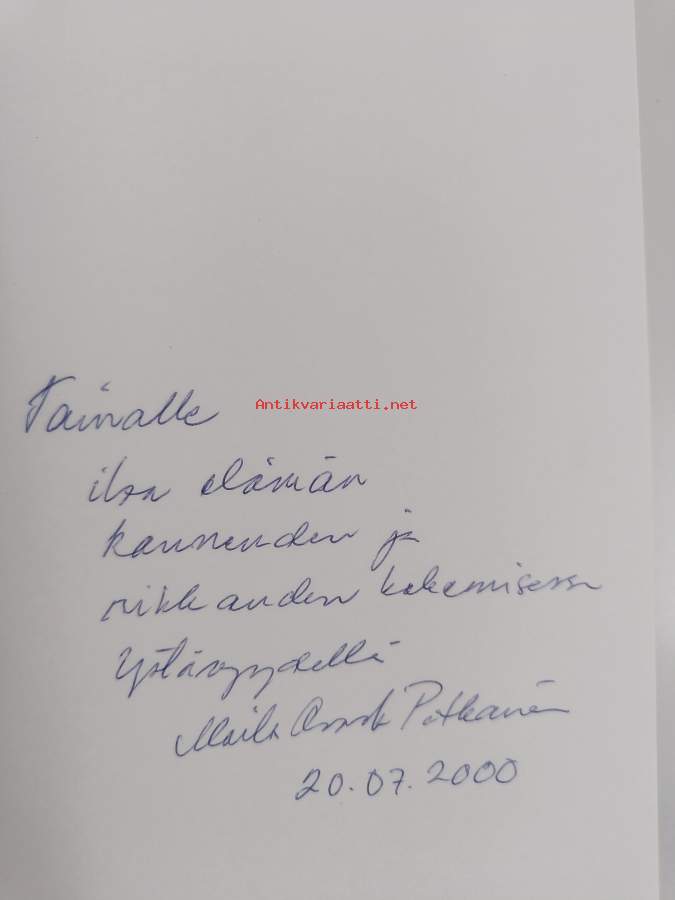 Tainalle
Antikvariaatti.net
iloa elämän
kauneuden ja
rikkauden kokemisessa
Ystävyydellä
Maila Pitkänen
20.07.2000